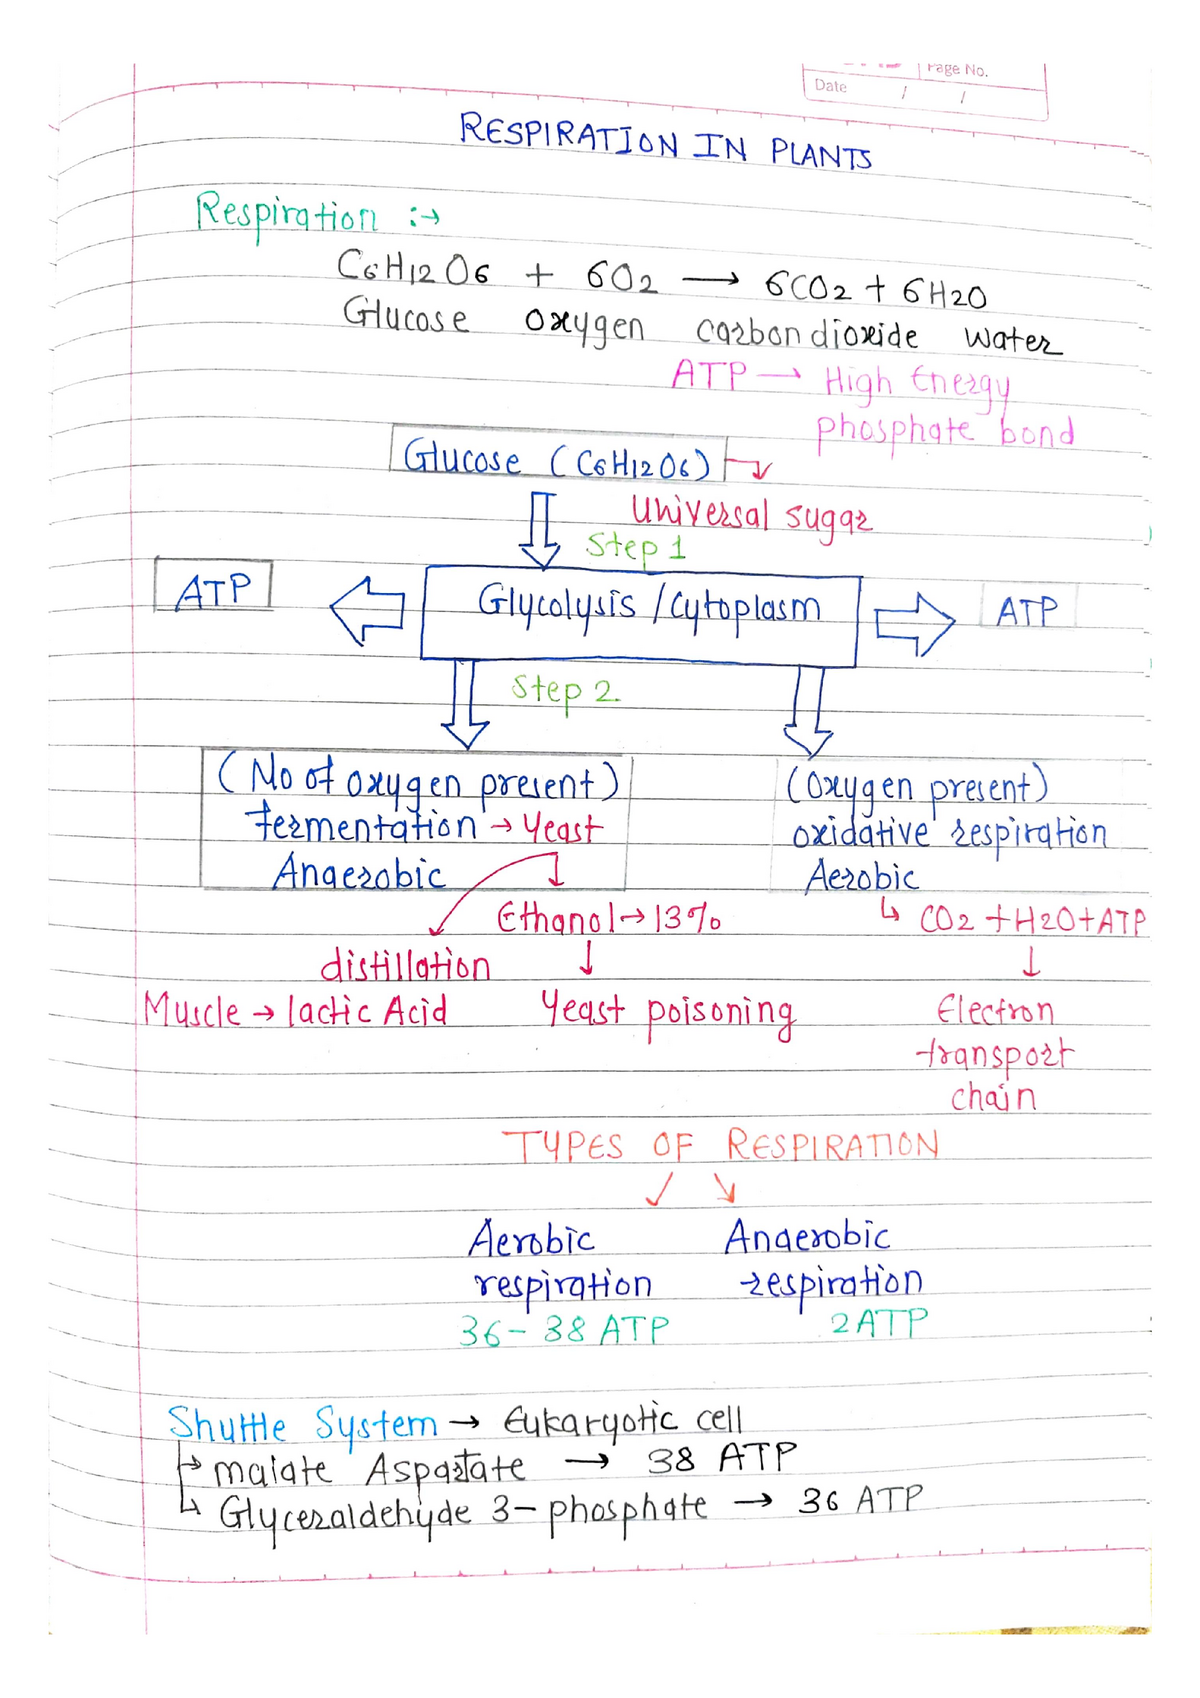 Page No.
Date / /
RESPIRATION IN PLANTS
Respiration :→
C6H12O6 + 6O2 → 6CO2 + 6H2O
Glucose oxygen carbondioxide water
ATP → High Energy
phosphate bond
Glucose (C6H12O6)
Universal sugar
Step 1
ATP Glycolysis /Cytoplasm ATP
Step 2.
(No of oxygen present) (Oxygen present)
fermentation → Yeast oxidative respiration
Anaerobic Aerobic
Ethanol → 13% ↳ CO2 + H2O + ATP
distillation ↓ ↓
Muscle → lactic Acid Yeast poisoning Electron
transport
chain
TYPES OF RESPIRATION
Aerobic Anaerobic
respiration respiration
36 - 38 ATP 2 ATP
Shuttle System → Eukaryotic cell
↳ malate Aspartate → 38 ATP
↳ Glyceraldehyde 3- phosphate → 36 ATP